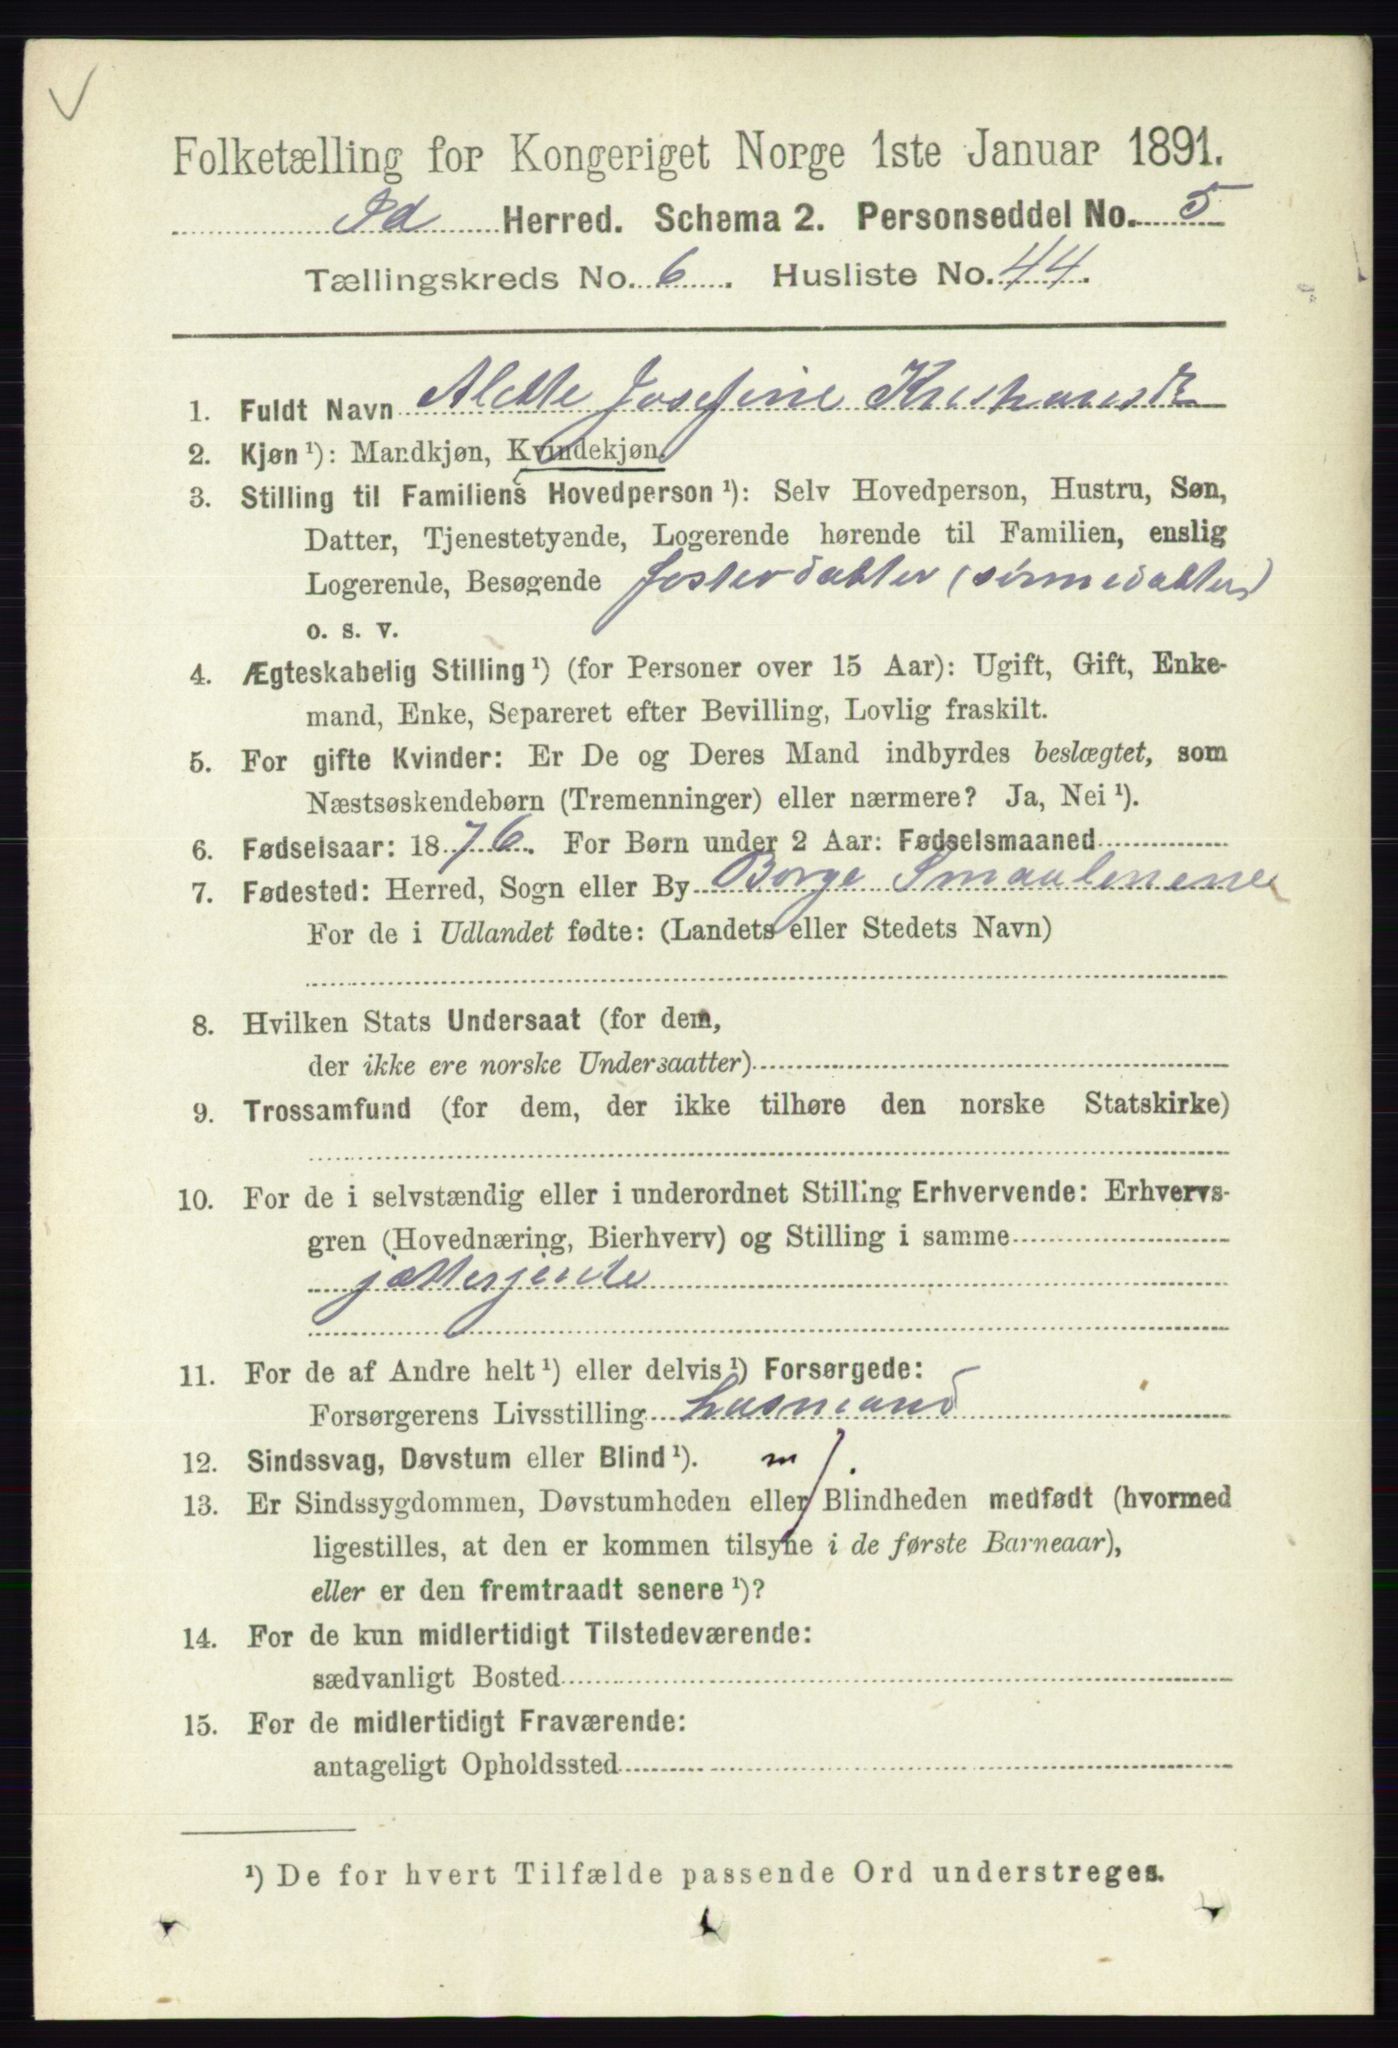 Folketælling for Kongeriget Norge 1ste Januar 1891.
Id Herred. Schema 2. Personseddel No. 5
Tællingskreds No. 6. Husliste No. 44.
1. Fuldt Navn Alette Josefine Kristiansdt
2. Kjøn ¹): Mandkjøn, Kvindekjøn.
3. Stilling til Familiens Hovedperson ¹): Selv Hovedperson, Hustru, Søn,
Datter, Tjenestetyende, Logerende hørende til Familien, enslig
Logerende, Besøgende fosterdatter (sønnedatter)
o. s. v.
4. Ægteskabelig Stilling ¹) (for Personer over 15 Aar): Ugift, Gift, Enke-
mand, Enke, Separeret efter Bevilling, Lovlig fraskilt.
5. For gifte Kvinder: Er De og Deres Mand indbyrdes beslægtet, som
Næstsøskendebørn (Tremenninger) eller nærmere? Ja, Nei ¹).
6. Fødselsaar: 1876. For Børn under 2 Aar: Fødselsmaaned
7. Fødested: Herred, Sogn eller By Borge Smaalenene
For de i Udlandet fødte: (Landets eller Stedets Navn)
8. Hvilken Stats Undersaat (for dem,
der ikke ere norske Undersaatter)
9. Trossamfund (for dem, der ikke tilhøre den norske Statskirke)
10. For de i selvstændig eller i underordnet Stilling Erhvervende: Erhvervs-
gren (Hovednæring, Bierhverv) og Stilling i samme
jætterjente
11. For de af Andre helt ¹) eller delvis ¹) Forsørgede:
Forsørgerens Livsstilling husmand
12. Sindssvag, Døvstum eller Blind ¹).
13. Er Sindssygdommen, Døvstumheden eller Blindheden medfødt (hvormed
ligestilles, at den er kommen tilsyne i de første Barneaar),
eller er den fremtraadt senere ¹)?
14. For de kun midlertidigt Tilstedeværende:
sædvanligt Bosted
15. For de midlertidigt Fraværende:
antageligt Opholdssted
¹) De for hvert Tilfælde passende Ord understreges.